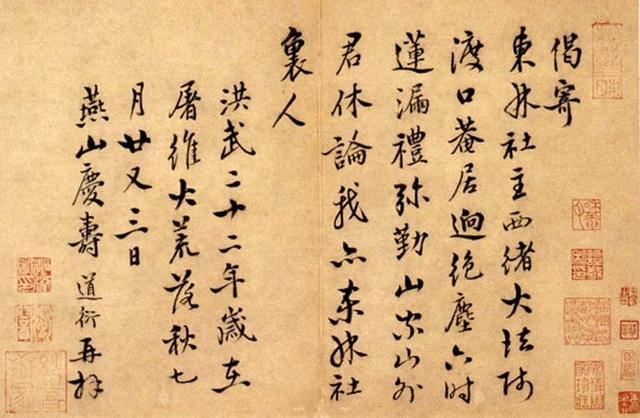 偈寄
東林社主西緒大法師
渡口菴居迥絕塵六時
蓮漏禮弥勤山家山外
君休論我亦東林社
裏人
洪武二十二年歲在
屠維大荒落秋七
月廿又三日
燕山慶壽道衍再拜